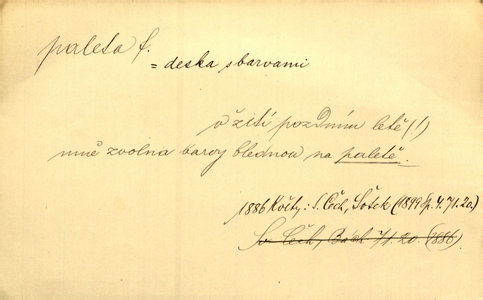 paleta f.
= deska s barvami
v žití pozdním létě (!)
mně zvolna barvy blednou na paletě.
1886 Květy: S. Čech, Sp. 4. 71. 20)
Sv. Čech, 71. 20. (1886)